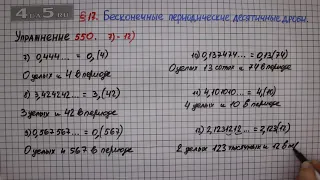 4 LA 5.ru
§ 17. Бесконечные периодические десятичные дроби.
Упражнение 550. 7)-12)
7) 0,444... = 0,(4)
0 целых и 4 в периоде
8) 3,424242... = 3,(42)
3 целых и 42 в периоде
9) 0,567567... = 0,(567)
0 целых и 567 в периоде
10) 0,137474... = 0,13(74)
0 целых 13 сотых и 74 в периоде
11) 4,101010... = 4,(10)
4 целых и 10 в периоде
12) 2,1231212... = 2,123(12)
2 целых 123 тысячных и 12 в